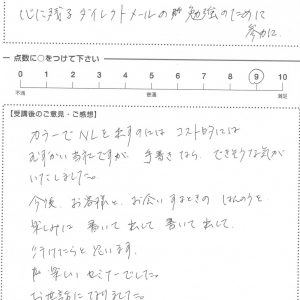 心に残るダイレクトメールの勉強のために
参加に
点数に○をつけて下さい
0 1 2 3 4 5 6 7 8 9 10
不満 普通 満足
【受講後のご意見・ご感想】
カラーでNLを出すのにはコスト的には
むずかしいですが、手書きなら、できそうな気が
いたしました。
今後、お客様と、お会いするときのはんのうを
楽しみに書いて出して書いて出して、
行けたらと思います。
楽しいセミナーでした。
お世話になりました。